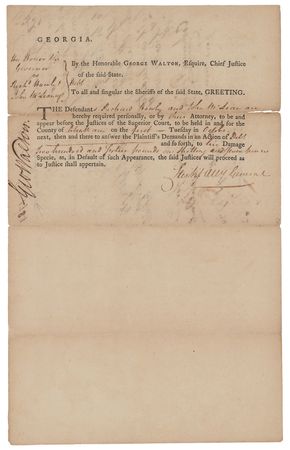 GEORGIA.
His Honor the
Governor
vs
Richd. Howly &
John McLean
Debt
By the Honorable GEORGE WALTON, Esquire, Chief Justice
of the said State.
To all and singular the Sheriffs of the said State, GREETING.
THE Defendants Richard Howly and John McLean are
hereby required personally, or by their Attorney, to be and
appear before the Justices of the Superior Court, to be held in and for the
County of Chatham on the first Tuesday in October
next, then and there to answer the Plaintiff's Demands in an Action of Debt
two hundred and pounds
and so forth, to his Damage
Specie, as, in Default of such Appearance, the said Justices will proceed as
to Justice shall appertain.
Geo Walton
Atty General